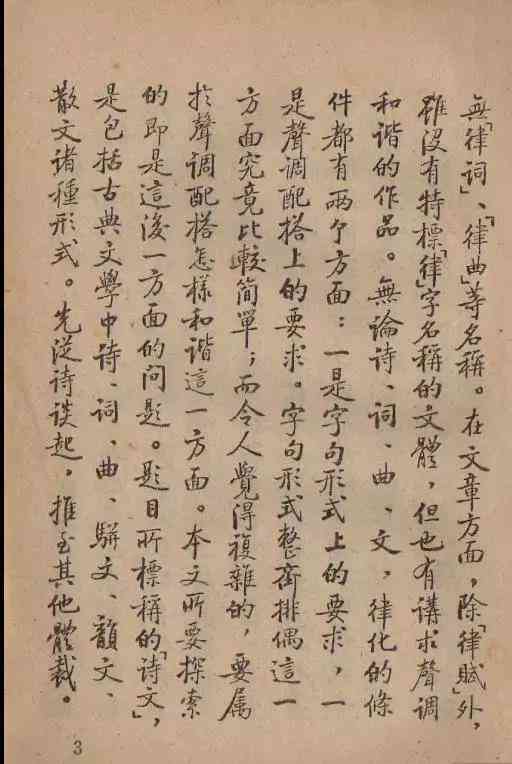 無「律詞」、「律曲」等名稱。在文章方面，除「律賦」外，
雖没有特標「律」字名稱的文體，但也有講求聲調
和諧的作品。無論詩、詞、曲、文，律化的條
件都有兩个方面：一是字句形式上的要求，一
是聲調配搭上的要求。字句形式整齊排偶這一
方面究竟比較簡單；而令人覺得複雜的，要属
於聲調配搭怎樣和諧這一方面。本文所要探索
的即是這後一方面的问題。題目所標稱的「詩文」，
是包括古典文學中诗、詞、曲、駢文、韻文、
散文诸種形式。先從诗谈起，推至其他體裁。
3